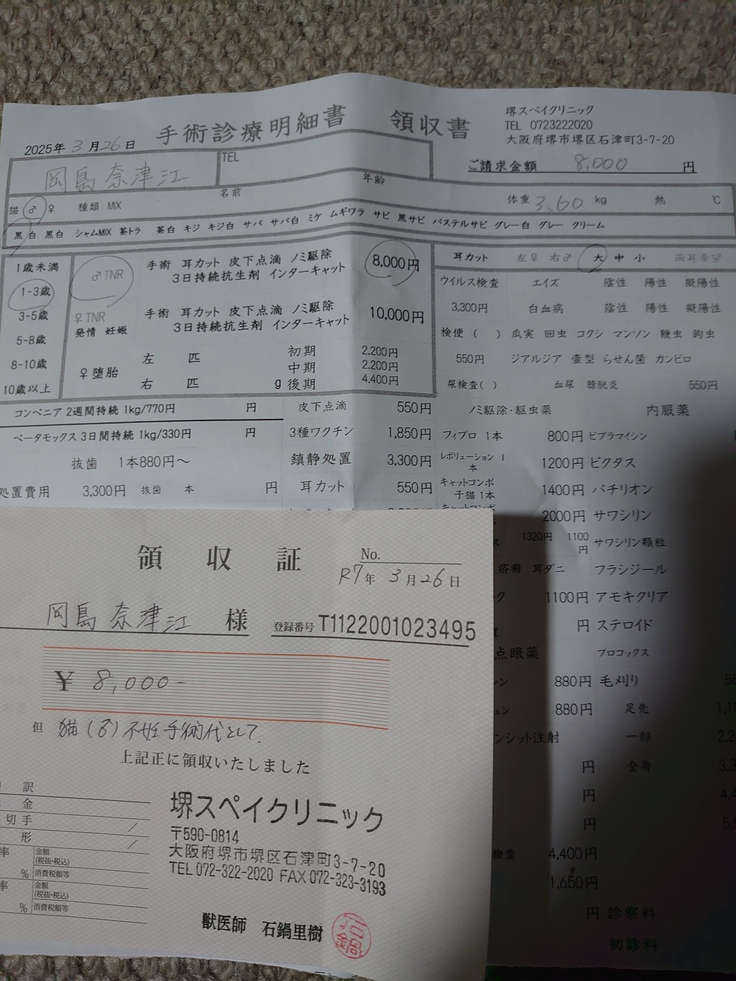 2025年 3月26日 手術診療明細書 領収書
堺スペイクリニック
TEL 0723222020
大阪府堺市堺区石津町3-7-20
ご請求金額 8,000 円
岡島 奈津江
TEL
名前
年齢
体重 3.60 kg 熱 ℃
猫 ♂ ♀ 種類 MIX
黒 白 黒白 シャムMIX 茶トラ 茶白 キジ キジ白 サバ サバ白 ミケ ムギワラ サビ 黒サビ パステルサビ グレー白 グレー クリーム
1歳未満
1-3歳
3-5歳
5-8歳
8-10歳
10歳以上
♂TNR
手術 耳カット 皮下点滴 ノミ駆除
3日持続抗生剤 インターキャット
8,000円
♀TNR
発情 妊娠
手術 耳カット 皮下点滴 ノミ駆除
3日持続抗生剤 インターキャット
10,000円
♀堕胎
左 匹
右 匹 g
初期 2,200円
中期 2,200円
後期 4,400円
コンベニア 2週間持続 1kg/770円 円
ベータモックス 3日間持続 1kg/330円 円
抜歯 1本880円～
処置費用 3,300円 抜歯 本 円
皮下点滴 550円
3種ワクチン 1,850円
鎮静処置 3,300円
耳カット 550円
耳カット 左♀ 右♂ 大 中 小 両耳希望
ウイルス検査 エイズ 陰性 陽性 擬陽性
3,300円 白血病 陰性 陽性 擬陽性
検便 ( ) 瓜実 回虫 コクシ マンソン 鞭虫 鉤虫
550円 ジアルジア 壷型 らせん菌 カンピロ
尿検査( ) 血尿 膀胱炎 550円
ノミ駆除・駆虫薬
フィプロ 1本 800円
レボリューション 1本 1200円
キャットコンボ 子猫1本 1400円
2000円
1320円 1100円
疥癬 耳ダニ
1100円
円
点眼薬
880円
880円
注射
円
円
円
検査 4,400円
1,650円
円 診察料
初診料
内服薬
ビブラマイシン
ビクタス
バチリオン
サワシリン
サワシリン顆粒
フラジール
アモキクリア
ステロイド
プロコックス
毛刈り
足先
一部
全身
領収証
No.
R7年 3月26日
岡島 奈津江 様
登録番号 T1122001023495
¥ 8,000-
但 猫(♂)不妊手術代として
上記正に領収いたしました
訳
金
切手
形
率 金額(税抜・税込)
% 消費税額等
率 金額(税抜・税込)
% 消費税額等
堺スペイクリニック
〒590-0814
大阪府堺市堺区石津町3-7-20
TEL 072-322-2020 FAX 072-323-3193
獣医師 石鍋里樹
石鍋